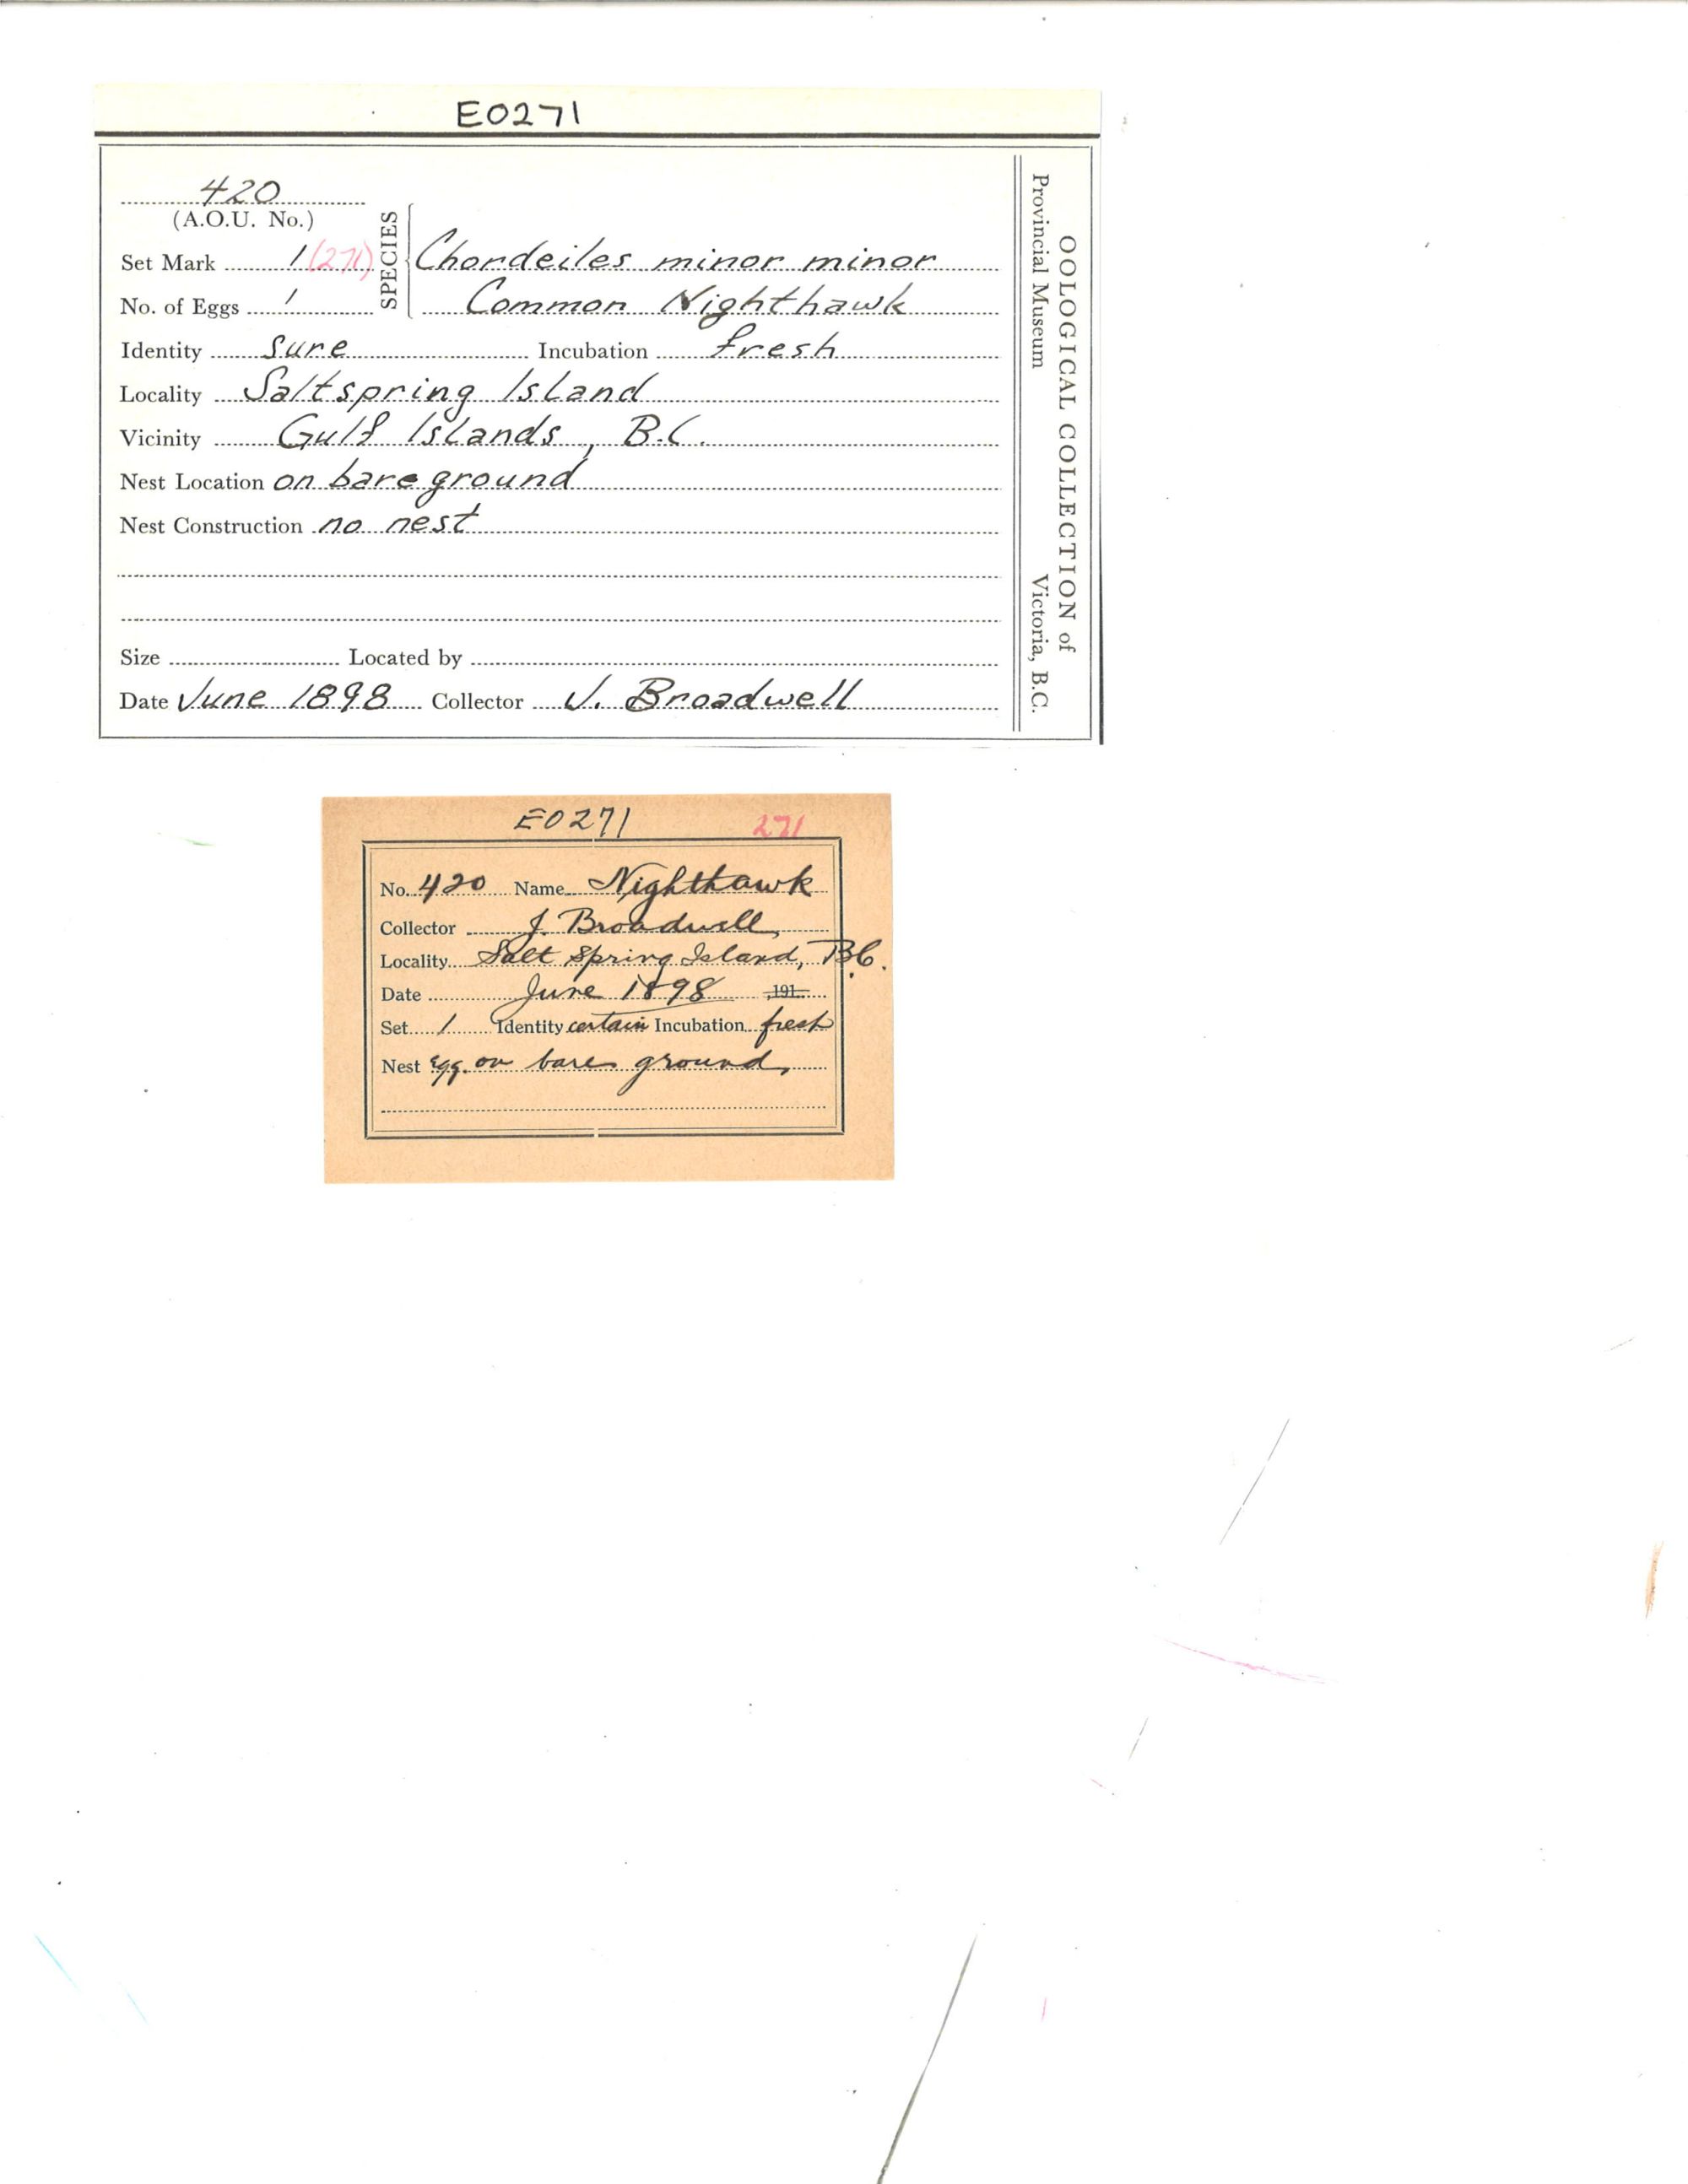 E0271
420
(A.O.U. No.)
SPECIES
Set Mark 1 (271) Chordeiles minor minor
No. of Eggs 1 Common Nighthawk
Identity sure Incubation fresh
Locality Saltspring Island
Vicinity Gulf Islands, B.C.
Nest Location on bare ground
Nest Construction no nest
Size Located by
Date June 1898 Collector J. Broadwell
OOLOGICAL COLLECTION of
Provincial Museum Victoria, B.C.
E0271 271
No. 420 Name Nighthawk
Collector J. Broadwell
Locality Salt Spring Island, B.C.
Date June 1898 ,191
Set 1 Identity certain Incubation fresh
Nest Egg on bare ground,